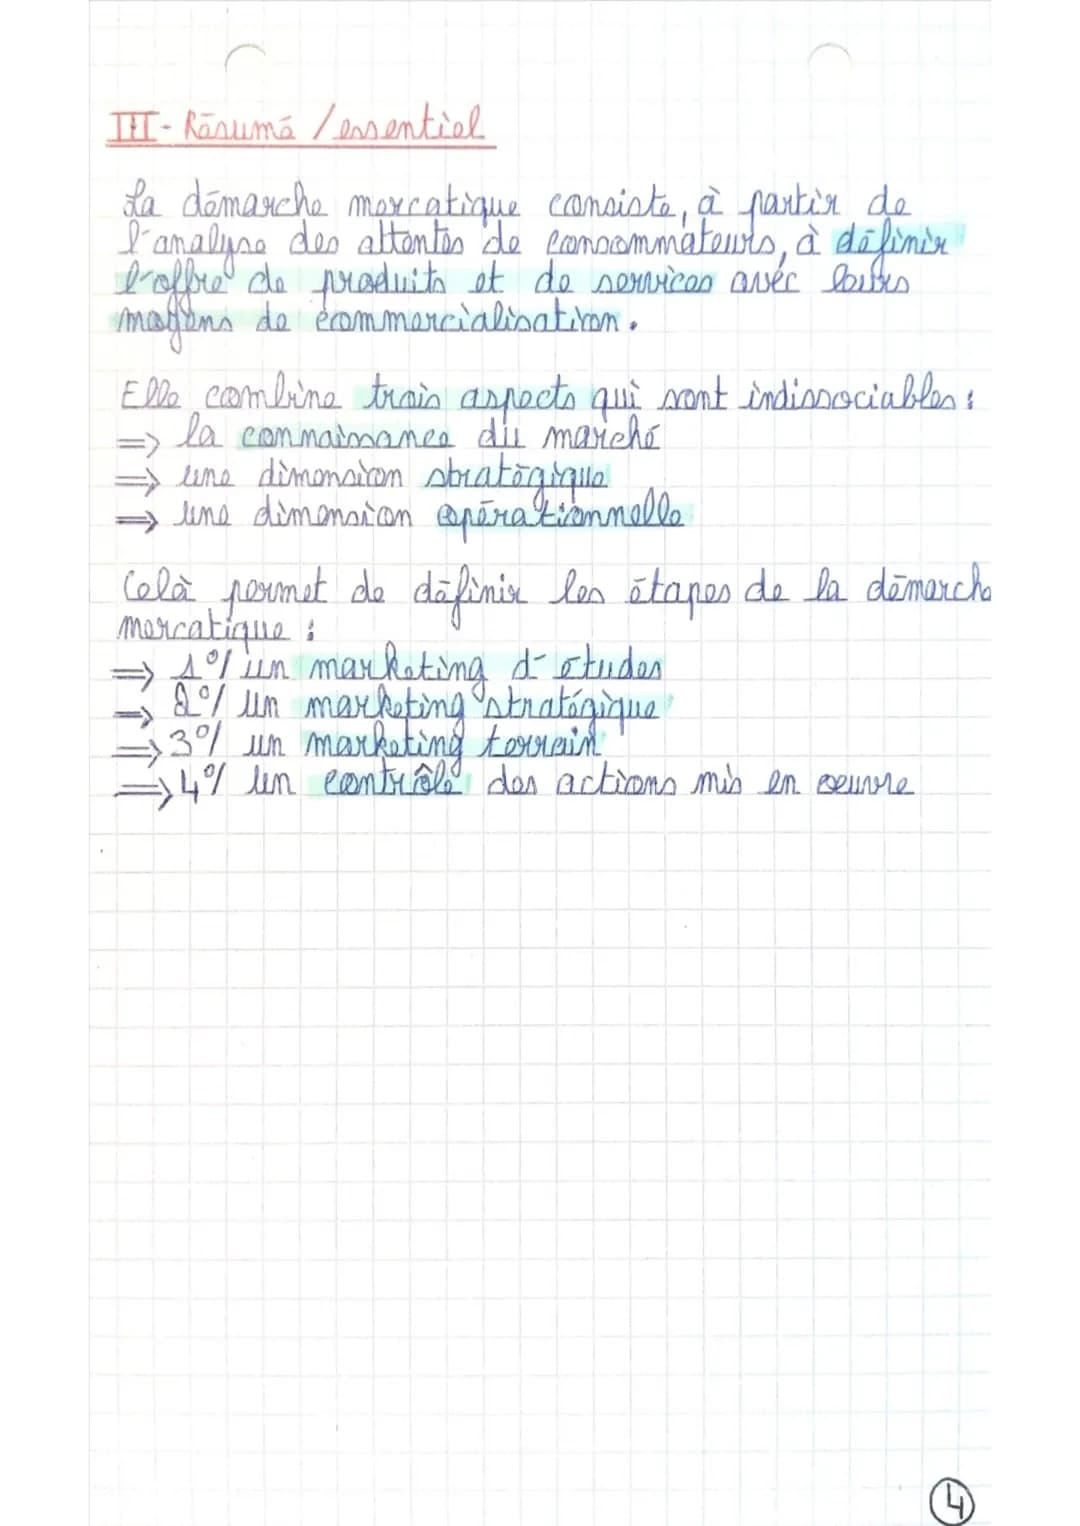 III - Résumé / essentiel
La démarche mercatique consiste, à partir de
l'analyse des attentes de consommateurs, à définir
l'offre de produits et de services avec leurs
moyens de commercialisation.
Elle combine trois aspects qui sont indissociables :
=> la connaissance du marché
=> une dimension stratégique
=> une dimension opérationnelle
Celà permet de définir les étapes de la démarche
mercatique :
=> 1°/ un marketing d'études
=> 2°/ un marketing stratégique
=> 3°/ un marketing terrain
=> 4°/ un contrôle des actions mis en oeuvre
4